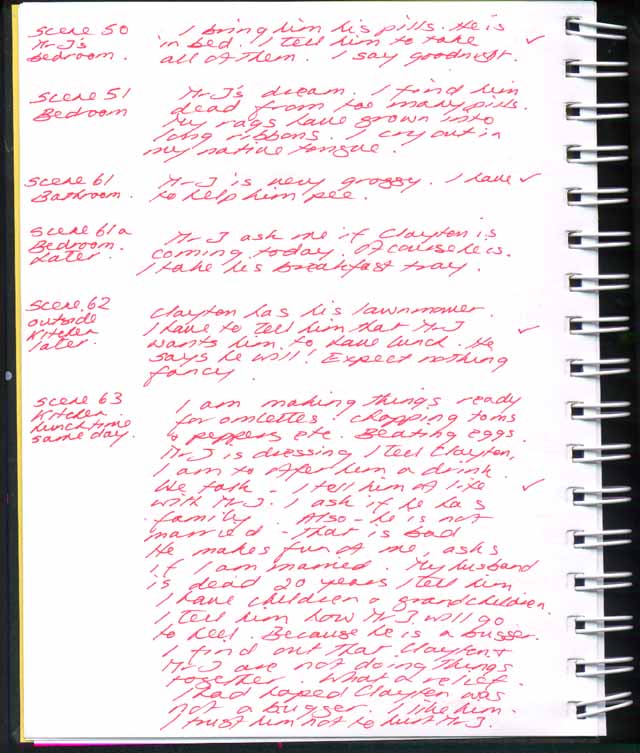 Scene 50 I bring him his pills. He is
Mr J's in bed. I tell him to take ✓
Bedroom. all of them. I say goodnight.
Scene 51 Mr J's dream. I find him
Bedroom dead from too many pills.
My rags have grown into
long ribbons. I cry out in
my native tongue.
Scene 61 Mr J is very groggy. I have ✓
Bathroom. to help him pee.
Scene 61a Mr J ask me if Clayton is
Bedroom. coming today. Of course he is.
Later. I take his breakfast tray.
Scene 62 Clayton has his lawnmower.
outside I have to tell him that Mr J ✓
Kitchen wants him to have lunch. He
later. says he will! Expect nothing
fancy.
Scene 63 I am making things ready
Kitchen. for omlettes. chopping toms
Lunchtime & peppers etc. Beating eggs.
same day. Mr J is dressing I tell Clayton,
I am to offer him a drink.
We talk - I tell him of life ✓
with Mr J. I ask if he has
family. Also - he is not
married - That is bad
He makes fun of me, asks
if I am married. My husband
is dead 20 years I tell him
I have children & grandchildren.
I tell him how Mr J will go
to hell. Because he is a bugger.
I find out that Clayton &
Mr J are not doing things
together. What a relief.
I had hoped Clayton was
not a bugger. I like him.
I trust him not to hurt Mr J.